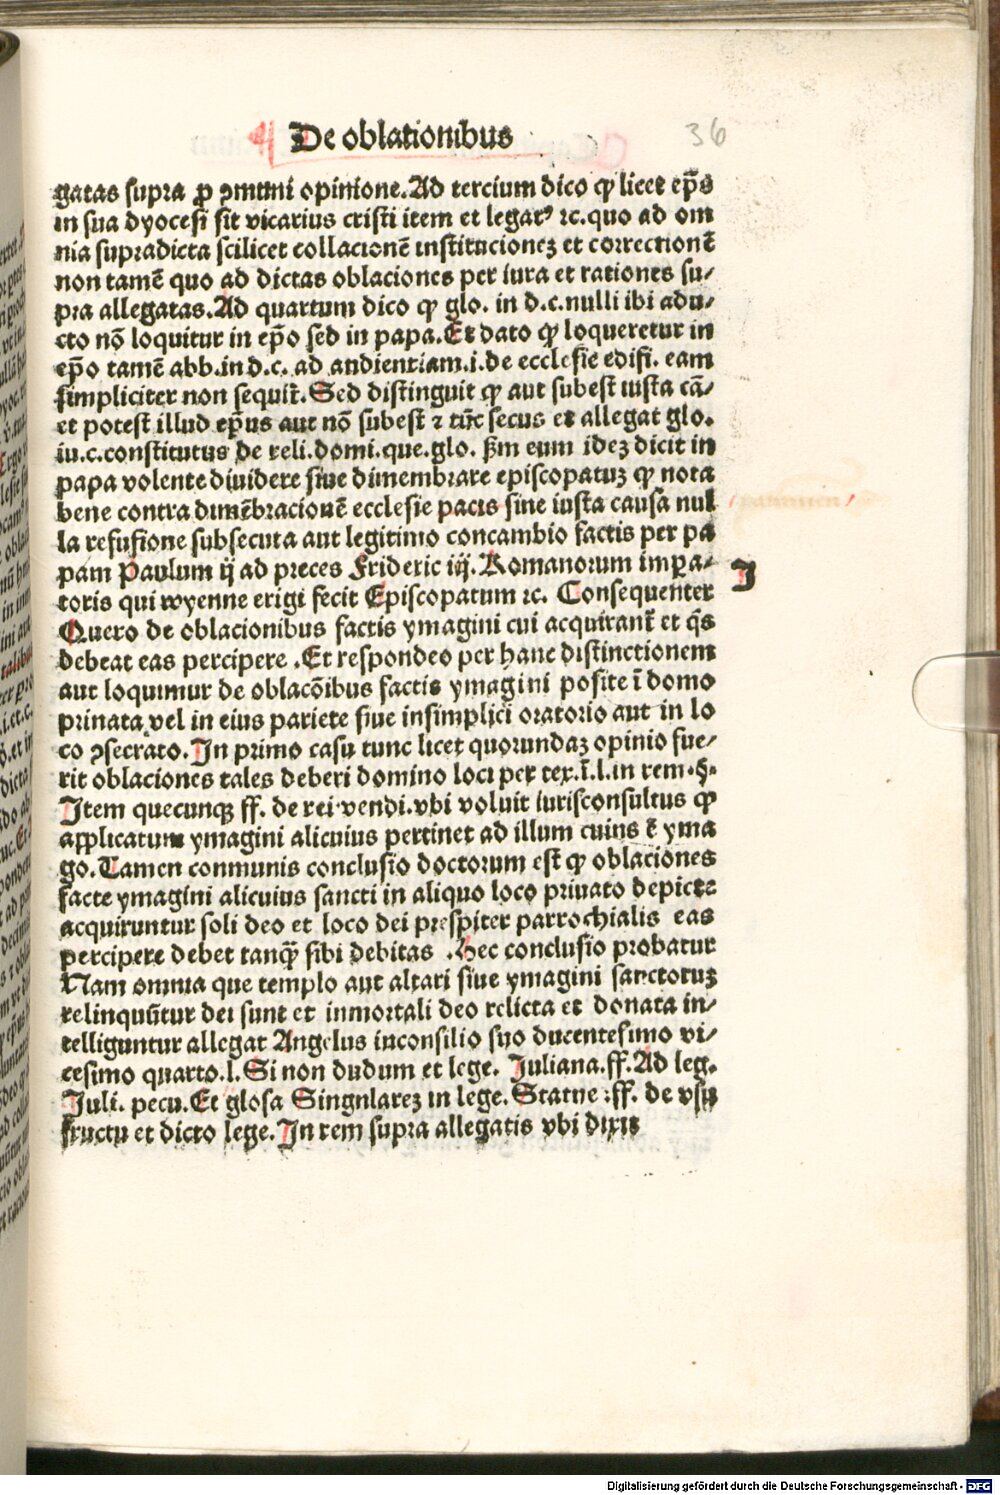 De oblationibus
36
gatas supra ꝓ ꝯmuni opinione. Ad tercium dico ꝙ licet ep̄s
in sua dyocesi sit vicarius cristi item et legatꝰ ⁊c. quo ad om
nia supradicta scilicet collacionē institucionez et correctionē
non tamē quo ad dictas oblaciones per iura et rationes su⸗
pra allegatas. Ad quartum dico ꝙ glo. in d.c. nulli ibi adu⸗
cto nō loquitur in ep̄o sed in papa. Et dato ꝙ loqueretur in
ep̄o tamē abb. in d.c. ad andientiam.i. de ecclesie edifi. eam
simpliciter non sequit̄. Sed distinguit ꝙ aut subest iusta cā⸗
et potest illud ep̄us aut nō subest ⁊ tūc secus et allegat glo.
iu.c. constitutus de reli. domi. que. glo. ẞm eum idez dicit in
papa volente diuidere siue dimembrare episcopatuz ꝙ nota
bene contra dimēbracionē ecclesie pacis sine iusta causa nul
la refusione subsecuta aut legitimo concambio factis per pa
pam Paulum ij ad preces Frideric iij. Romanorum imꝑa⸗
J
toris qui wyenne erigi fecit Episcopatum ⁊c. Consequenter
Quero de oblacionibus factis ymagini cui acquirant̄ et q̄s
debeat eas percipere. Et respondeo per hanc distinctionem
aut loquimur de oblacōibus factis ymagini posite ī domo
prinata vel in eius pariete siue insimplici oratorio aut in lo
co ꝯsecrato. In primo casu tunc licet quorundaz opinio fue⸗
rit oblaciones tales deberi domino loci per tex. ī.l. in rem .§.
Item quecunqꝫ ff. de rei vendi. vbi voluit iurisconsultus ꝙ
applicatum ymagini alicuius pertinet ad illum cuius ē yma
go. Tamen conmunis conclusio doctorum est ꝙ oblaciones
facte ymagini alicuius sancti in aliquo loco priuato depicte
acquiruntur soli deo et loco dei prespiter parrochialis eas
percipere debet tanꝙ̄ sibi debitas . Hec conclusio probatur
Nam omnia que templo aut altari siue ymagini sanctoruz
relinquūtur dei sunt et inmortali deo relicta et donata in⸗
telliguntur allegat Angelus inconsilio suo ducentesimo vi⸗
cesimo quarto. l. Si non dudum et lege. Juliana. ff. Ad leg.
Juli. pecu. Et glosa Singnlarez in lege. Statue : ff. de vsu
fructu et dicto lege. In rem supra allegatis vbi dixit
Digitalisierung gefördert durch die Deutsche Forschungsgemeinschaft - DFG